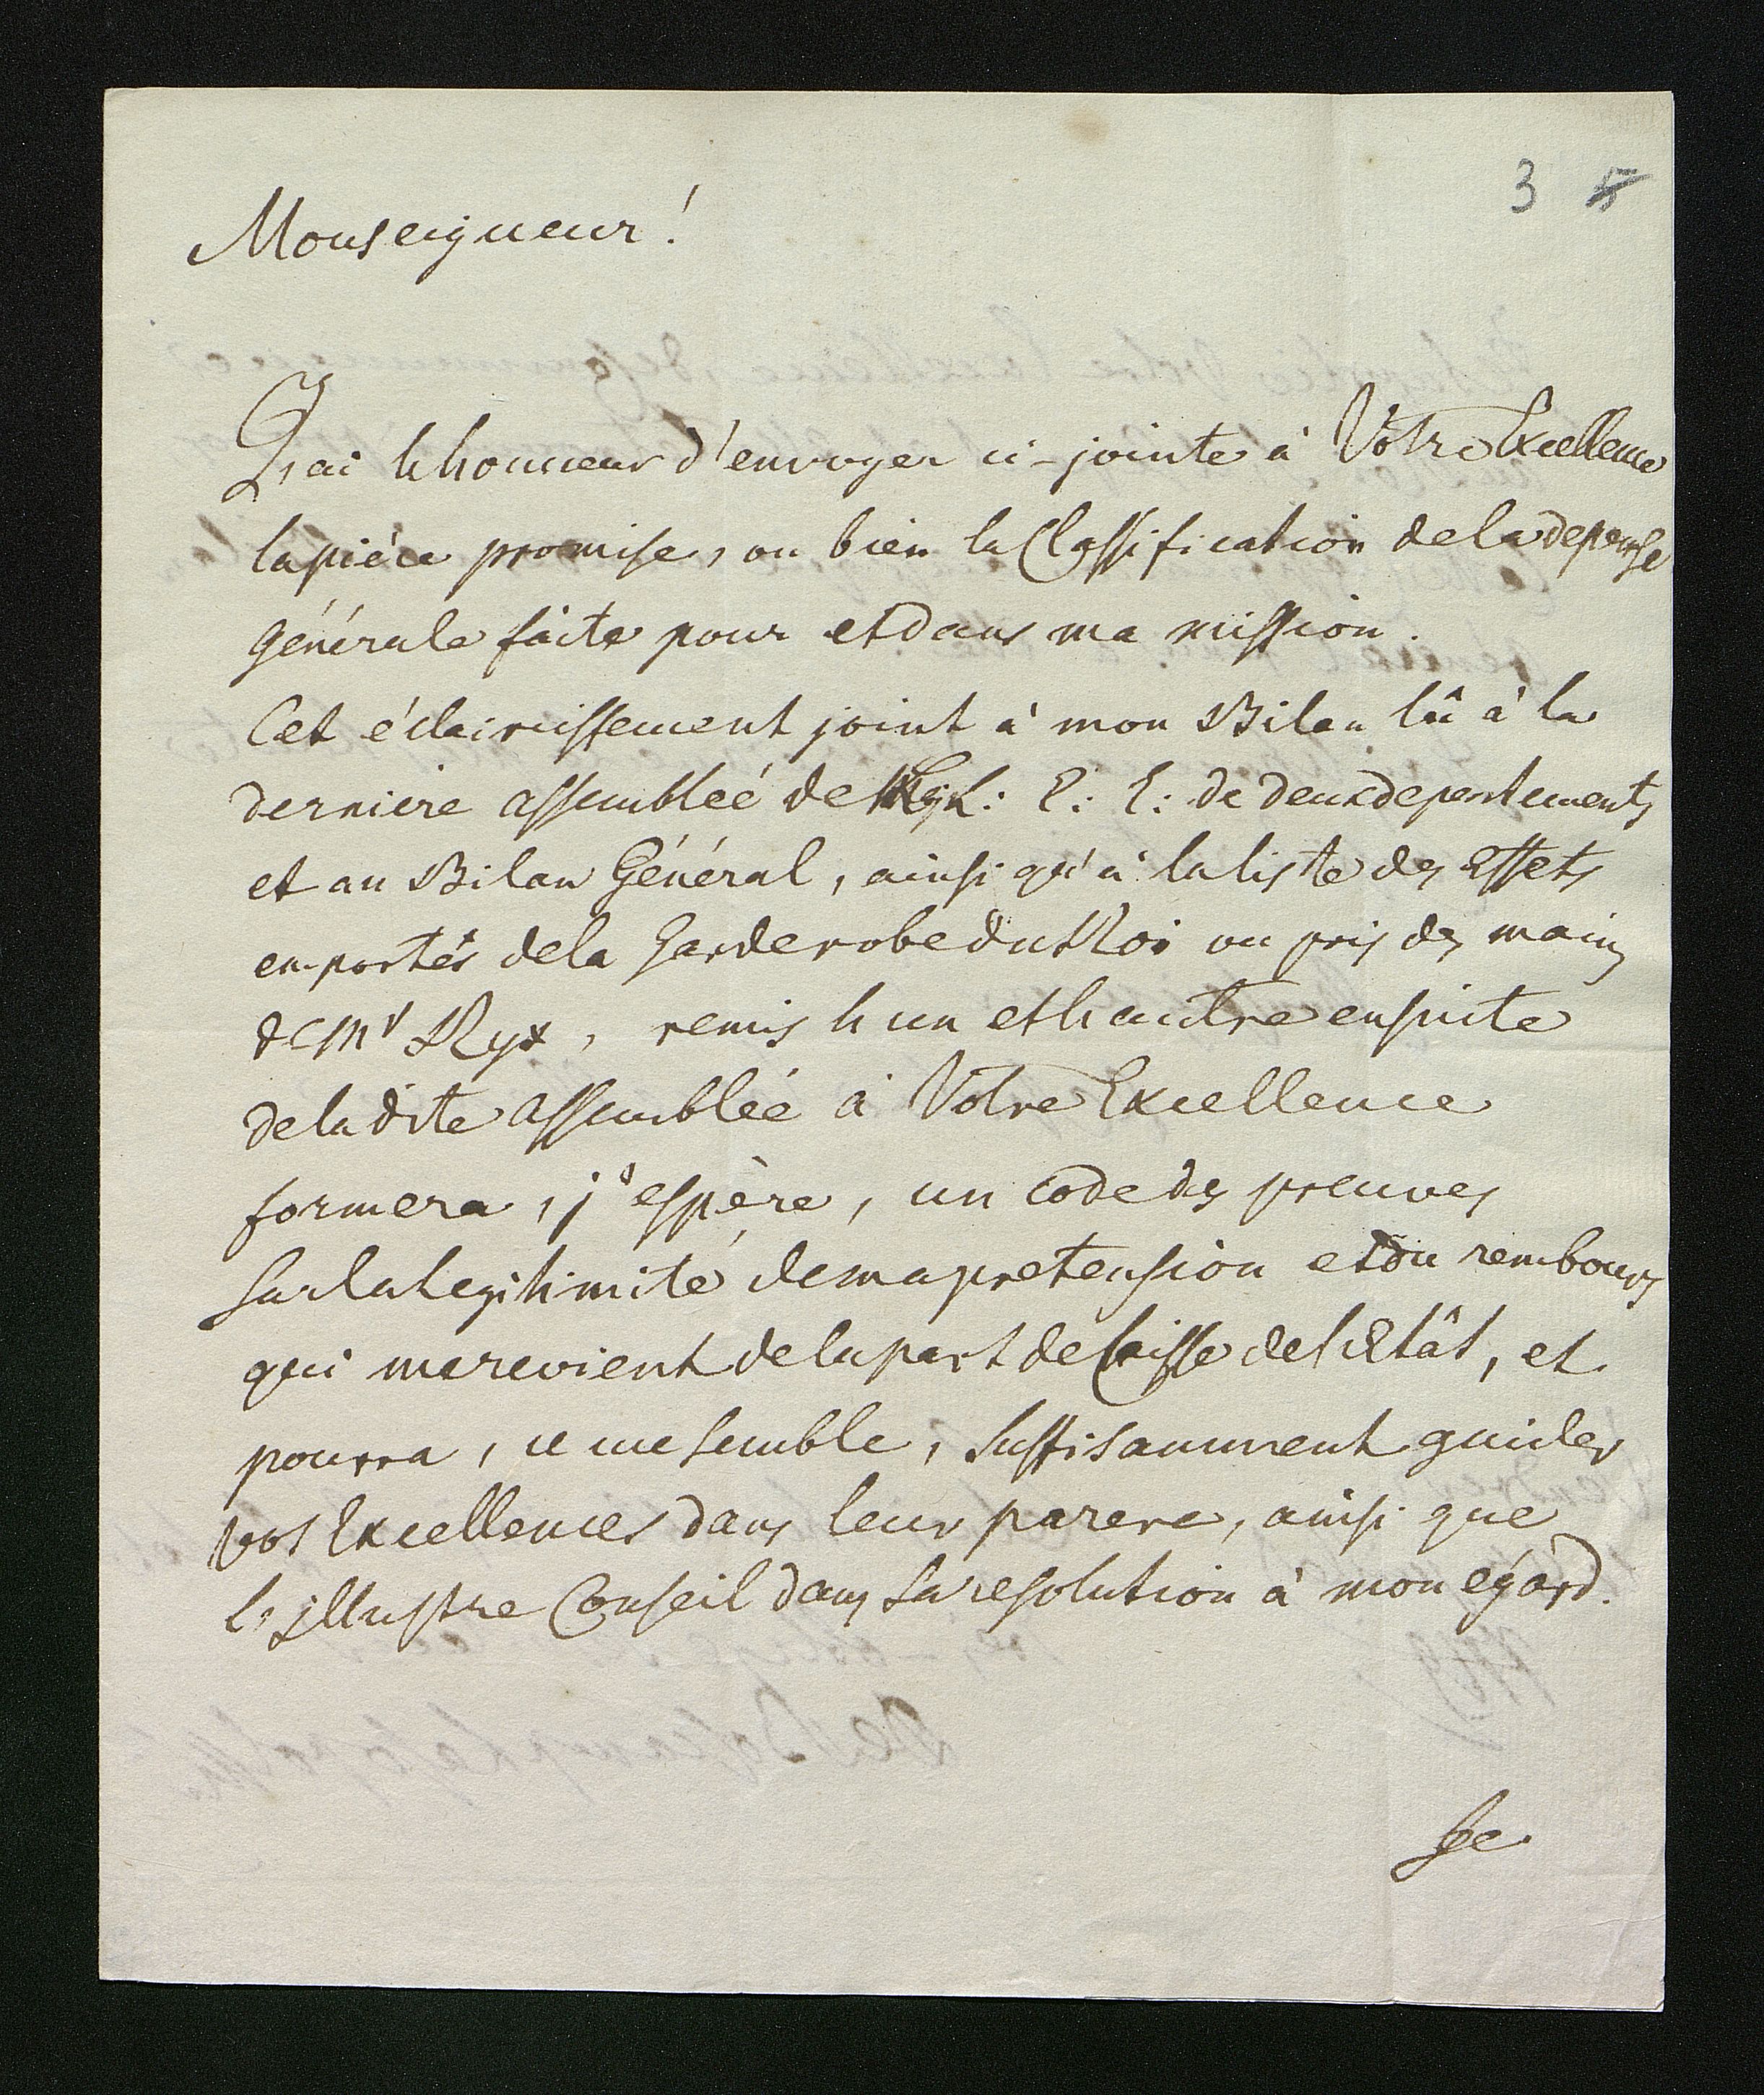 3 5
Monseigneur!
J'ai l'honneur d'envoyer ci-jointe à Votre Excellence
la piéce promise, ou bien la Classification de la depense
générale faite pour et dans ma mission.
Cet éclaircissement joint à mon Bilan lû à la
derniere assembleé de E: E: de deux departements
et au Bilan Général, ainsi qu'à la liste des Effets
emportés de la Garderobe du Roi ou pris des mains
de Mr Ryx, remis l'un et l'autre ensuite
de la dite assemblée à Votre Excellence
formera, j'espère, un code des preuves
sur la Legitimité de ma pretension et du rembours
qui me revient de la part de Caisse de l'Etât, et
pourra, ce me semble, suffisamment guider
vos Excellences dans leur parere, ainsi que
l'illustre Conseil dans sa resolution à mon égàrd.
Je